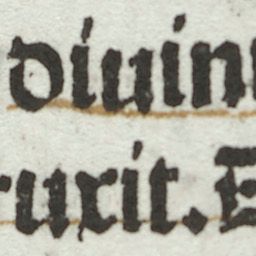 diuin
ruxit. E